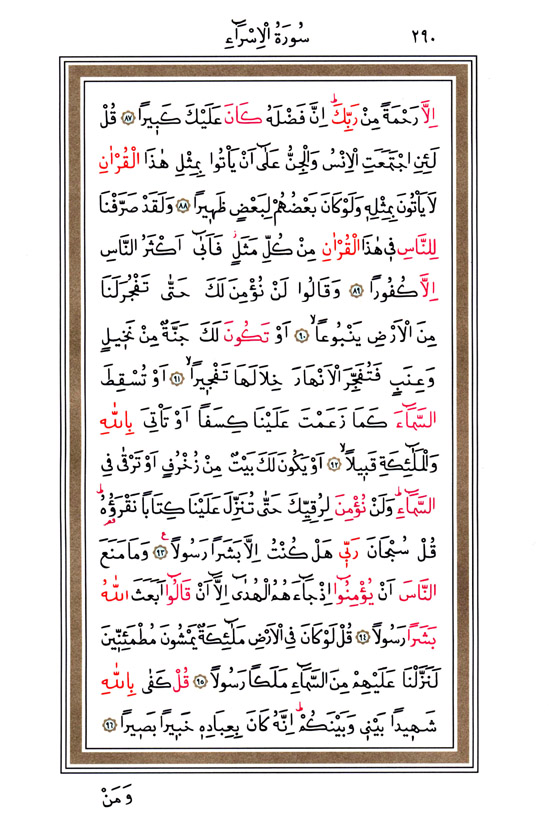 ٢٩٠ سُورَةُ الْاِسْرَٓاءِ
اِلَّا رَحْمَةً مِنْ رَبِّكَۜ اِنَّ فَضْلَهُ كَانَ عَلَيْكَ كَبٖيرًا ﴿٨٧﴾ قُلْ
لَئِنِ اجْتَمَعَتِ الْاِنْسُ وَالْجِنُّ عَلٰٓى اَنْ يَأْتُوا بِمِثْلِ هٰذَا الْقُرْاٰنِ
لَا يَأْتُونَ بِمِثْلِهٖ وَلَوْ كَانَ بَعْضُهُمْ لِبَعْضٍ ظَهٖيرًا ﴿٨٨﴾ وَلَقَدْ صَرَّفْنَا
لِلنَّاسِ فٖى هٰذَا الْقُرْاٰنِ مِنْ كُلِّ مَثَلٍؗ فَاَبٰٓى اَكْثَرُ النَّاسِ
اِلَّا كُفُورًا ﴿٨٩﴾ وَقَالُوا لَنْ نُؤْمِنَ لَكَ حَتّٰى تَفْجُرَ لَنَا
مِنَ الْاَرْضِ يَنْبُوعًاۙ ﴿٩٠﴾ اَوْ تَكُونَ لَكَ جَنَّةٌ مِنْ نَخٖيلٍ
وَعِنَبٍ فَتُفَجِّرَ الْاَنْهَارَ خِلَالَهَا تَفْجٖيرًاۙ ﴿٩١﴾ اَوْ تُسْقِطَ
السَّمَٓاءَ كَمَا زَعَمْتَ عَلَيْنَا كِسَفًا اَوْ تَأْتِىَ بِاللّٰهِ
وَالْمَلٰٓئِكَةِ قَبٖيلًاۙ ﴿٩٢﴾ اَوْ يَكُونَ لَكَ بَيْتٌ مِنْ زُخْرُفٍ اَوْ تَرْقٰى فِى
السَّمَٓاءِۜ وَلَنْ نُؤْمِنَ لِرُقِيِّكَ حَتّٰى تُنَزِّلَ عَلَيْنَا كِتَابًا نَقْرَؤُ۬هُۜ
قُلْ سُبْحَانَ رَبّٖى هَلْ كُنْتُ اِلَّا بَشَرًا رَسُولًاࣖ ﴿٩٣﴾ وَمَا مَنَعَ
النَّاسَ اَنْ يُؤْمِنُٓوا اِذْ جَٓاءَهُمُ الْهُدٰٓى اِلَّٓا اَنْ قَالُٓوا اَبَعَثَ اللّٰهُ
بَشَرًا رَسُولًا ﴿٩٤﴾ قُلْ لَوْ كَانَ فِى الْاَرْضِ مَلٰٓئِكَةٌ يَمْشُونَ مُطْمَئِنّٖينَ
لَنَزَّلْنَا عَلَيْهِمْ مِنَ السَّمَٓاءِ مَلَكًا رَسُولًا ﴿٩٥﴾ قُلْ كَفٰى بِاللّٰهِ
شَهٖيدًا بَيْنٖى وَبَيْنَكُمْۜ اِنَّهُ كَانَ بِعِبَادِهٖ خَبٖيرًا بَصٖيرًا ﴿٩٦﴾
وَمَنْ